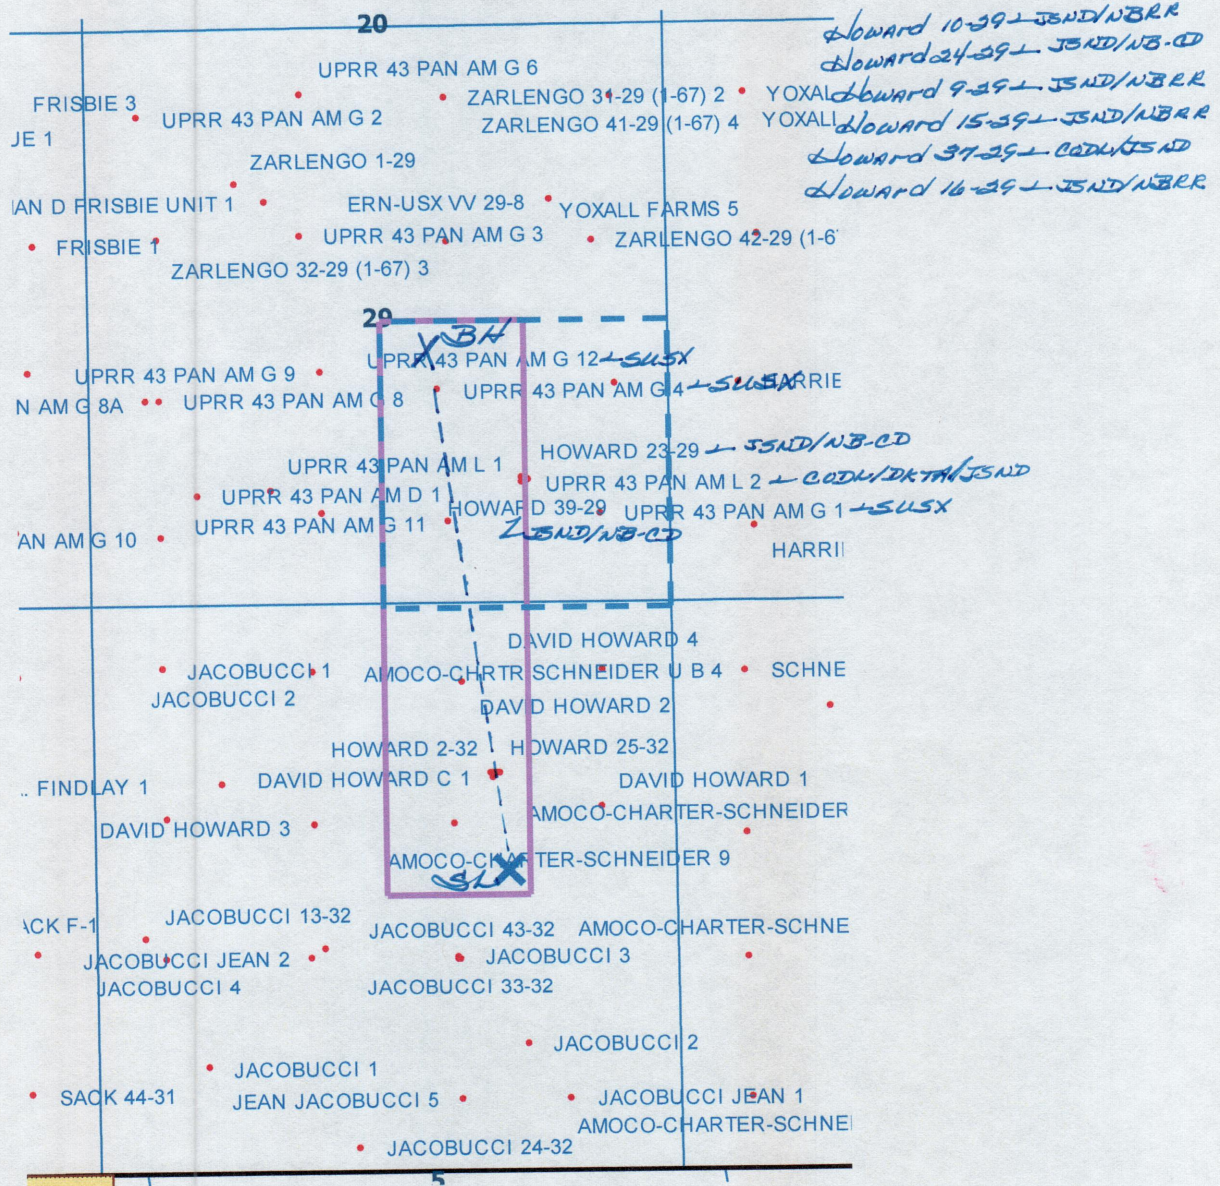 20
Howard 10-29 - JSND/NBRR
Howard 24-29 - JSND/NB-CD
UPRR 43 PAN AM G 6
Howard 9-29 - JSND/NBRR
FRISBIE 3
ZARLENGO 31-29 (1-67) 2
YOXAL
UPRR 43 PAN AM G 2
ZARLENGO 41-29 (1-67) 4
YOXALL
Howard 15-29 - JSND/NBRR
JE 1
Howard 37-29 - CODL/JSND
ZARLENGO 1-29
Howard 16-29 - JSND/NBRR
IAN D FRISBIE UNIT 1
ERN-USX VV 29-8
YOXALL FARMS 5
FRISBIE 1
UPRR 43 PAN AM G 3
ZARLENGO 42-29 (1-6
ZARLENGO 32-29 (1-67) 3
29
BH
UPRR 43 PAN AM G 12 - SUSX
UPRR 43 PAN AM G 9
N AM G 8A
UPRR 43 PAN AM G 8
UPRR 43 PAN AM G 4 - SUSX
HARRIE
HOWARD 23-29 - JSND/NB-CD
UPRR 43 PAN AM L 1
UPRR 43 PAN AM L 2 - CODL/DKTA/JSND
UPRR 43 PAN AM D 1
HOWARD 39-29
UPRR 43 PAN AM G 1 - SUSX
UPRR 43 PAN AM G 11
JSND/NB-CD
AN AM G 10
HARRI
DAVID HOWARD 4
JACOBUCCI 1
AMOCO-CHRTR SCHNEIDER U B 4
SCHNE
JACOBUCCI 2
DAVID HOWARD 2
HOWARD 2-32
HOWARD 25-32
FINDLAY 1
DAVID HOWARD C 1
DAVID HOWARD 1
AMOCO-CHARTER-SCHNEIDER
DAVID HOWARD 3
AMOCO-CHARTER-SCHNEIDER 9
SL
ACK F-1
JACOBUCCI 13-32
JACOBUCCI 43-32
AMOCO-CHARTER-SCHNE
JACOBUCCI JEAN 2
JACOBUCCI 3
JACOBUCCI 4
JACOBUCCI 33-32
JACOBUCCI 2
JACOBUCCI 1
SACK 44-31
JEAN JACOBUCCI 5
JACOBUCCI JEAN 1
AMOCO-CHARTER-SCHNEI
JACOBUCCI 24-32
5